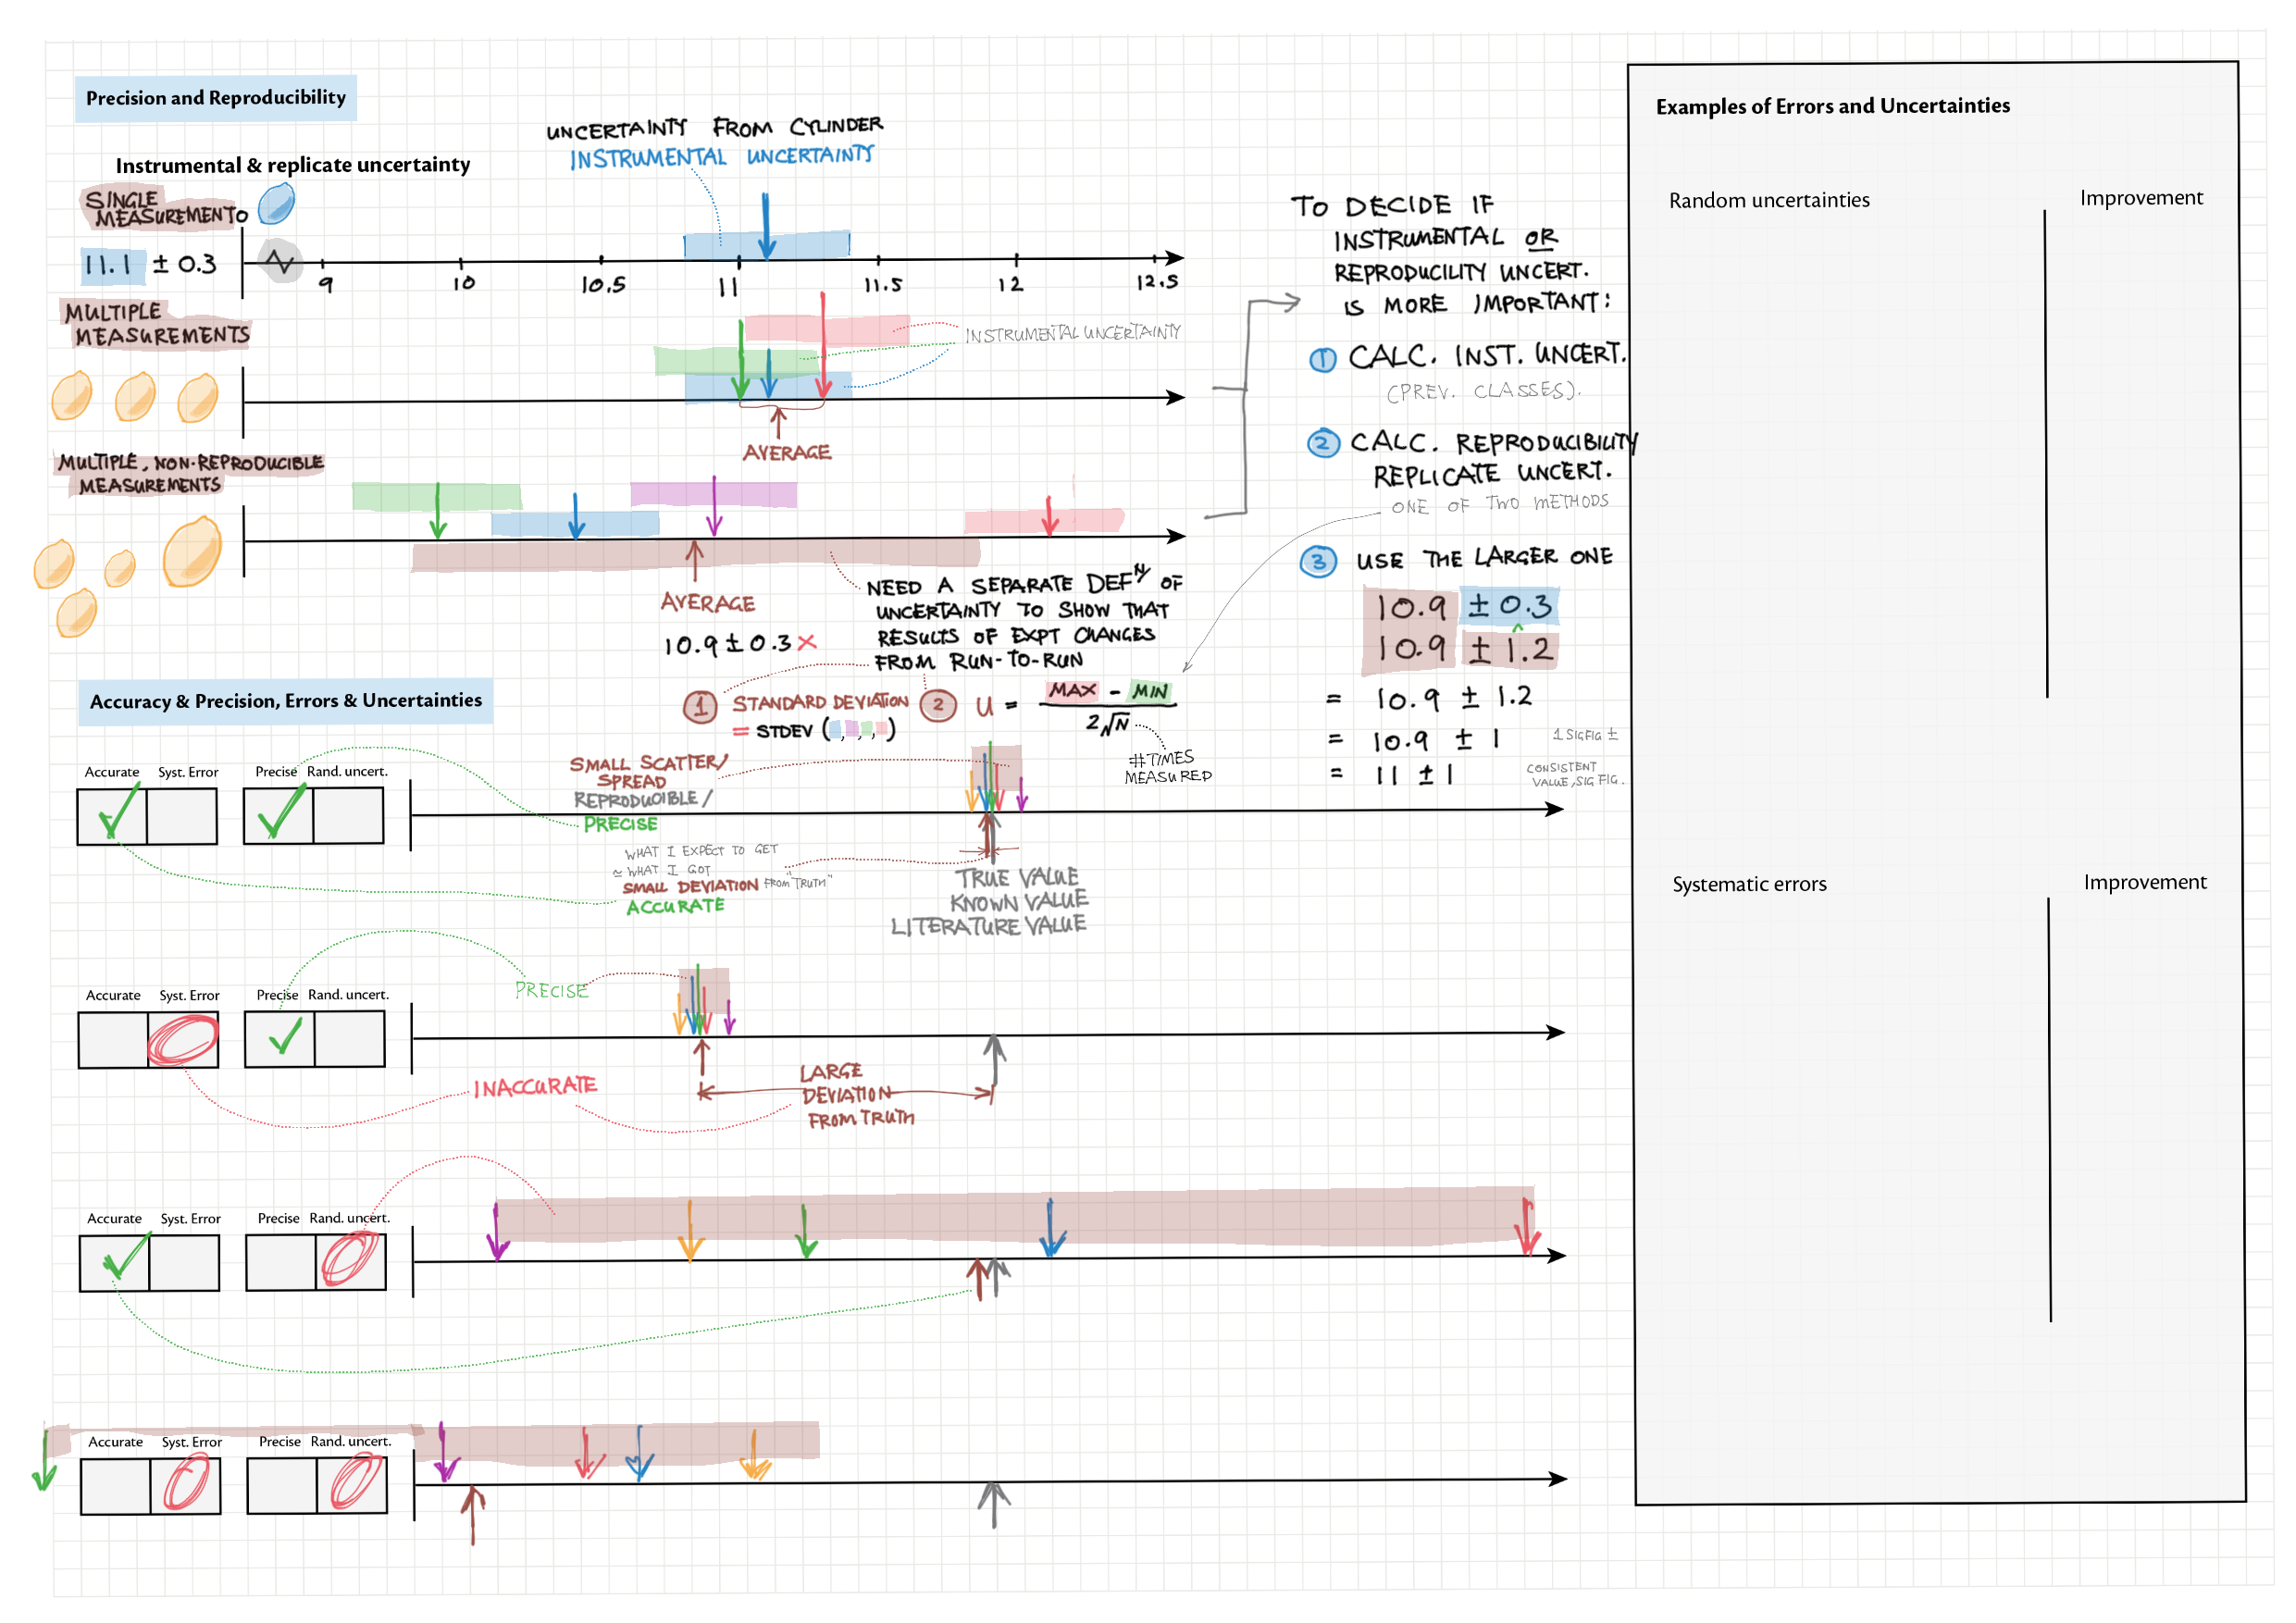 Precision and Reproducibility
Instrumental & replicate uncertainty
UNCERTAINTY FROM CYLINDER
INSTRUMENTAL UNCERTAINTY
SINGLE
MEASUREMENT
11.1 ± 0.3
9 10 10.5 11 11.5 12 12.5
MULTIPLE
MEASUREMENTS
INSTRUMENTAL UNCERTAINTY
AVERAGE
MULTIPLE, NON-REPRODUCIBLE
MEASUREMENTS
AVERAGE
10.9 ± 0.3 ×
NEED A SEPARATE DEF^N OF
UNCERTAINTY TO SHOW THAT
RESULTS OF EXPT CHANGES
FROM RUN-TO-RUN
1 STANDARD DEVIATION
= STDEV ( , , , )
2 U = MAX - MIN
2√N
#TIMES
MEASURED
TO DECIDE IF
INSTRUMENTAL OR
REPRODUCILITY UNCERT.
IS MORE IMPORTANT:
1 CALC. INST. UNCERT.
(PREV. CLASSES).
2 CALC. REPRODUCIBILITY
REPLICATE UNCERT.
ONE OF TWO METHODS
3 USE THE LARGER ONE
10.9 ± 0.3
10.9 ± 1.2
= 10.9 ± 1.2
= 10.9 ± 1 1 SIGFIG ±
= 11 ± 1 CONSISTENT
VALUE, SIG FIG.
Accuracy & Precision, Errors & Uncertainties
Accurate Syst. Error Precise Rand. uncert.
SMALL SCATTER/
SPREAD
REPRODUCIBLE/
PRECISE
WHAT I EXPECT TO GET
≃ WHAT I GOT
SMALL DEVIATION FROM "TRUTH"
ACCURATE
TRUE VALUE
KNOWN VALUE
LITERATURE VALUE
Accurate Syst. Error Precise Rand. uncert.
PRECISE
INACCURATE
LARGE
DEVIATION
FROM TRUTH
Accurate Syst. Error Precise Rand. uncert.
Accurate Syst. Error Precise Rand. uncert.
Examples of Errors and Uncertainties
Random uncertainties Improvement
Systematic errors Improvement